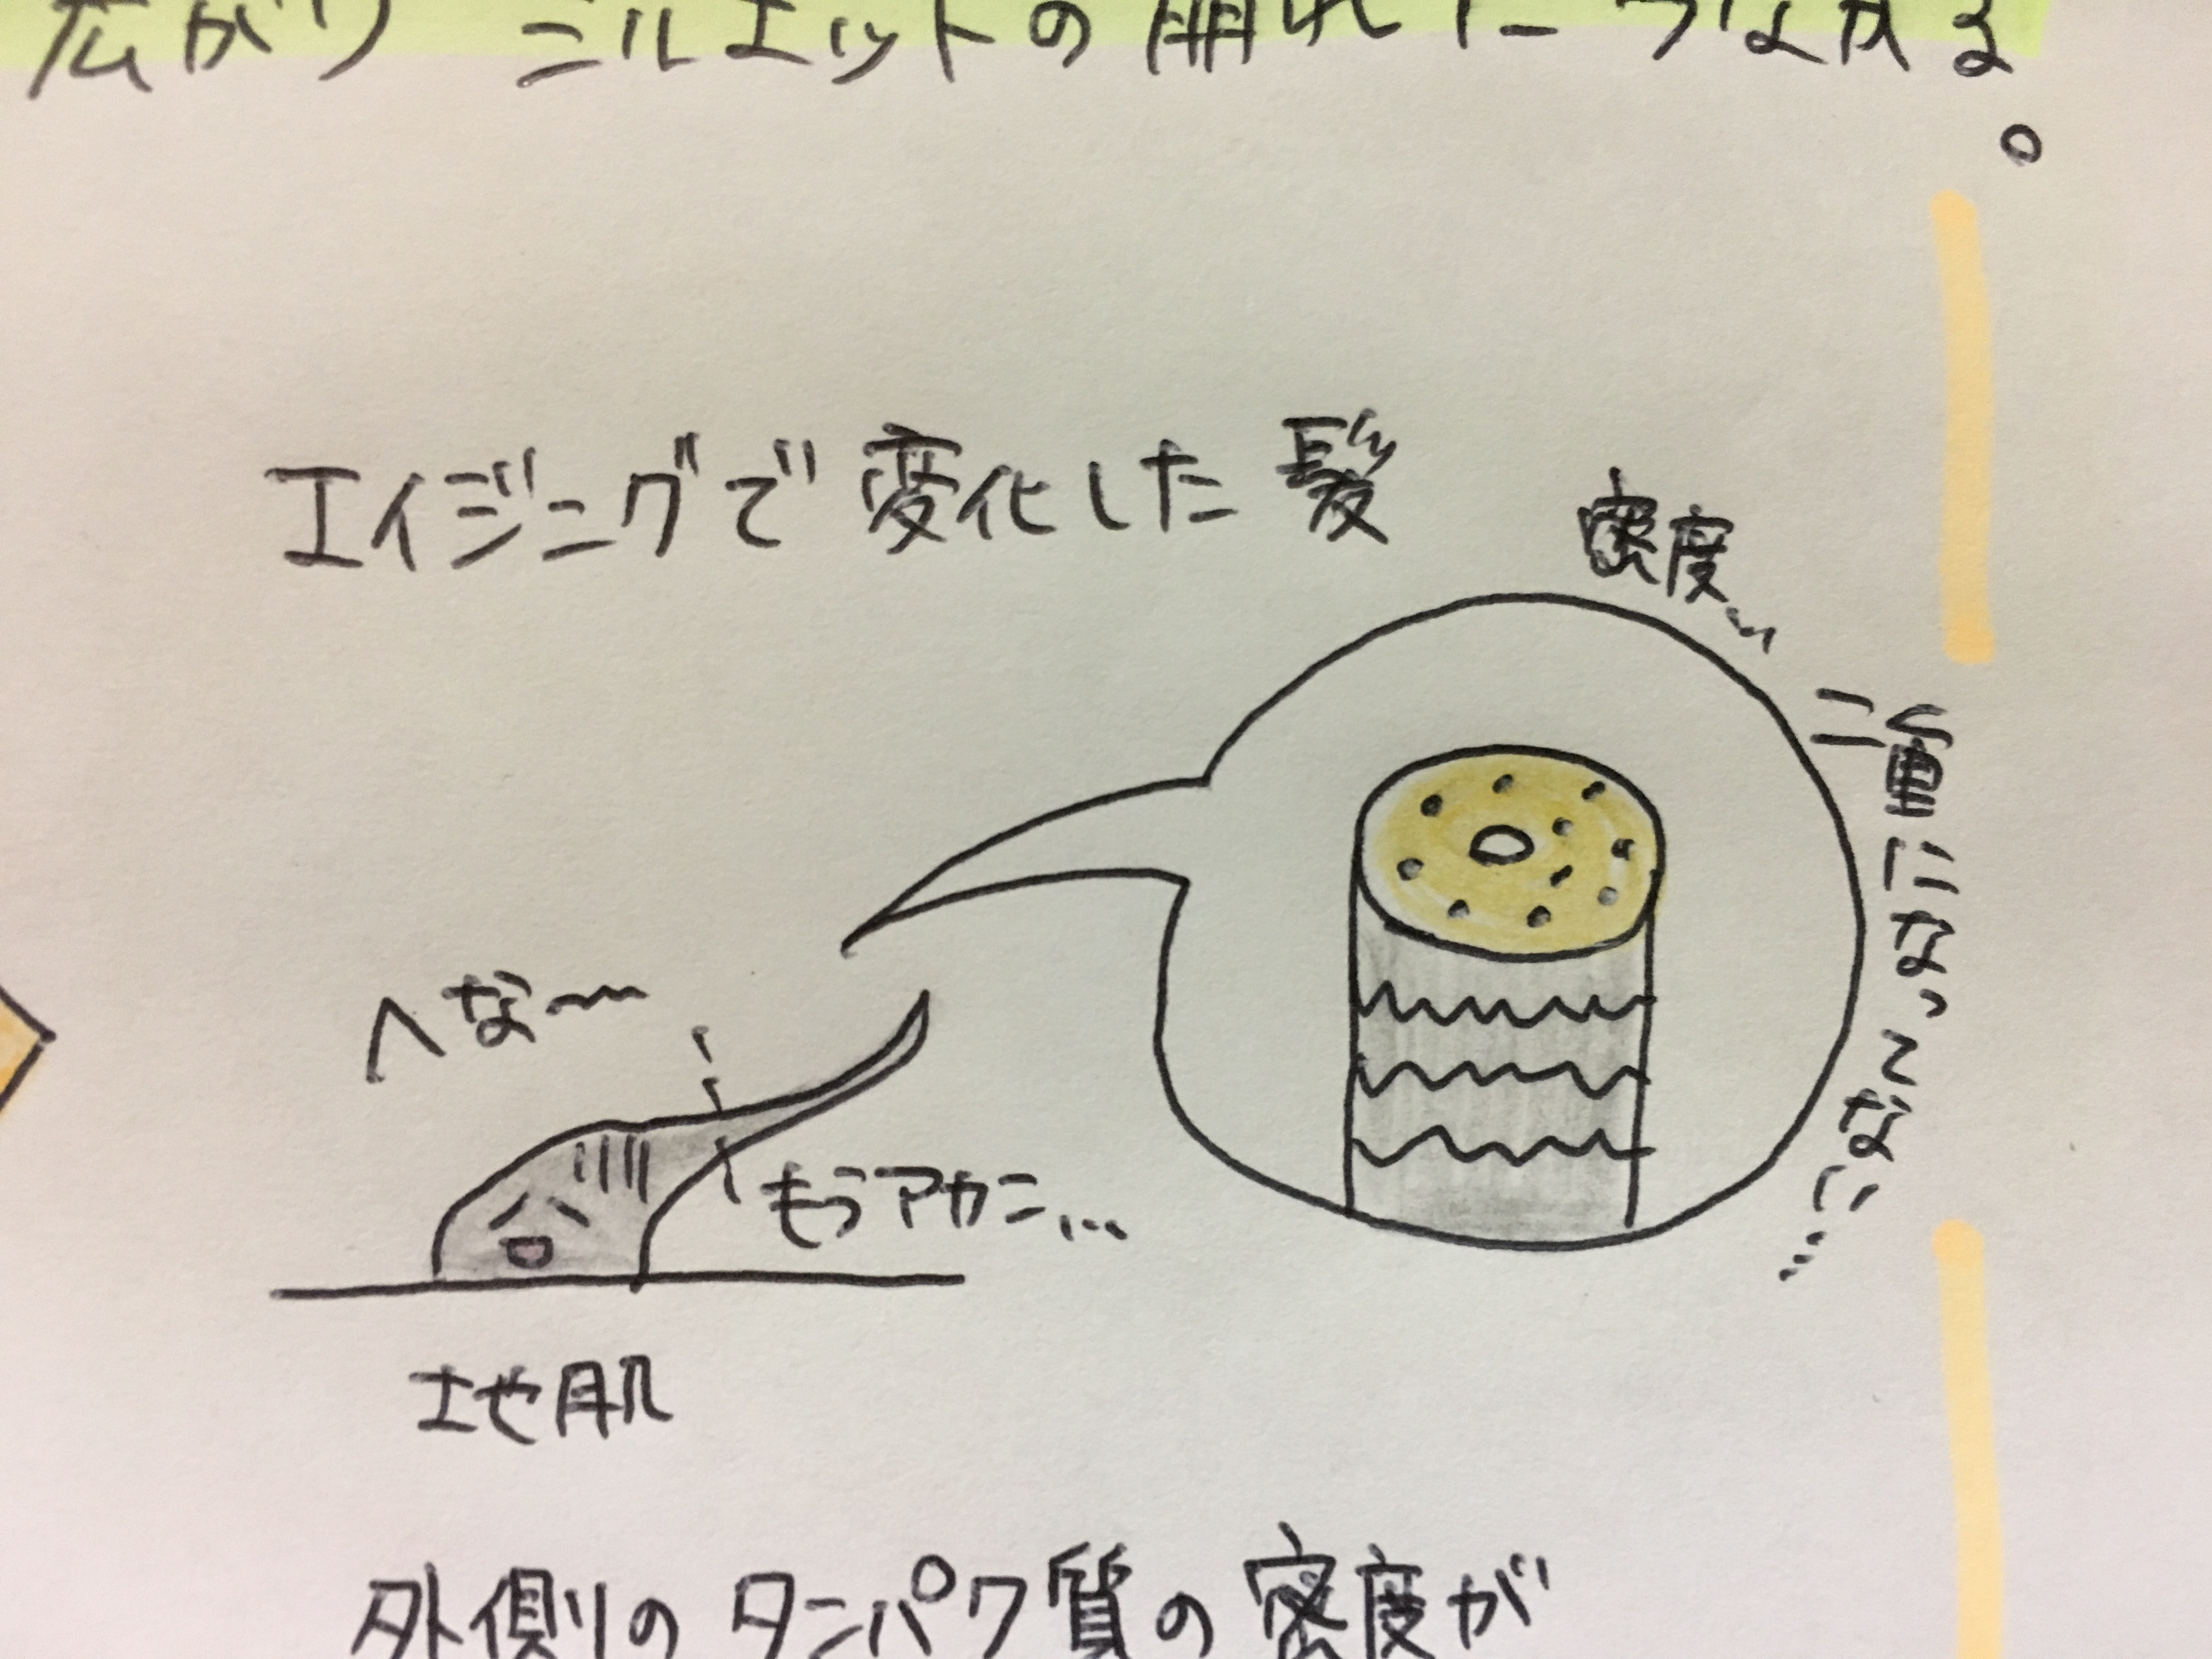 広がり シルエットの崩れにつながる。
エイジングで変化した髪
密度
二重になってない…
へな〜
もうアカン…
地肌
外側のタンパク質の密度が